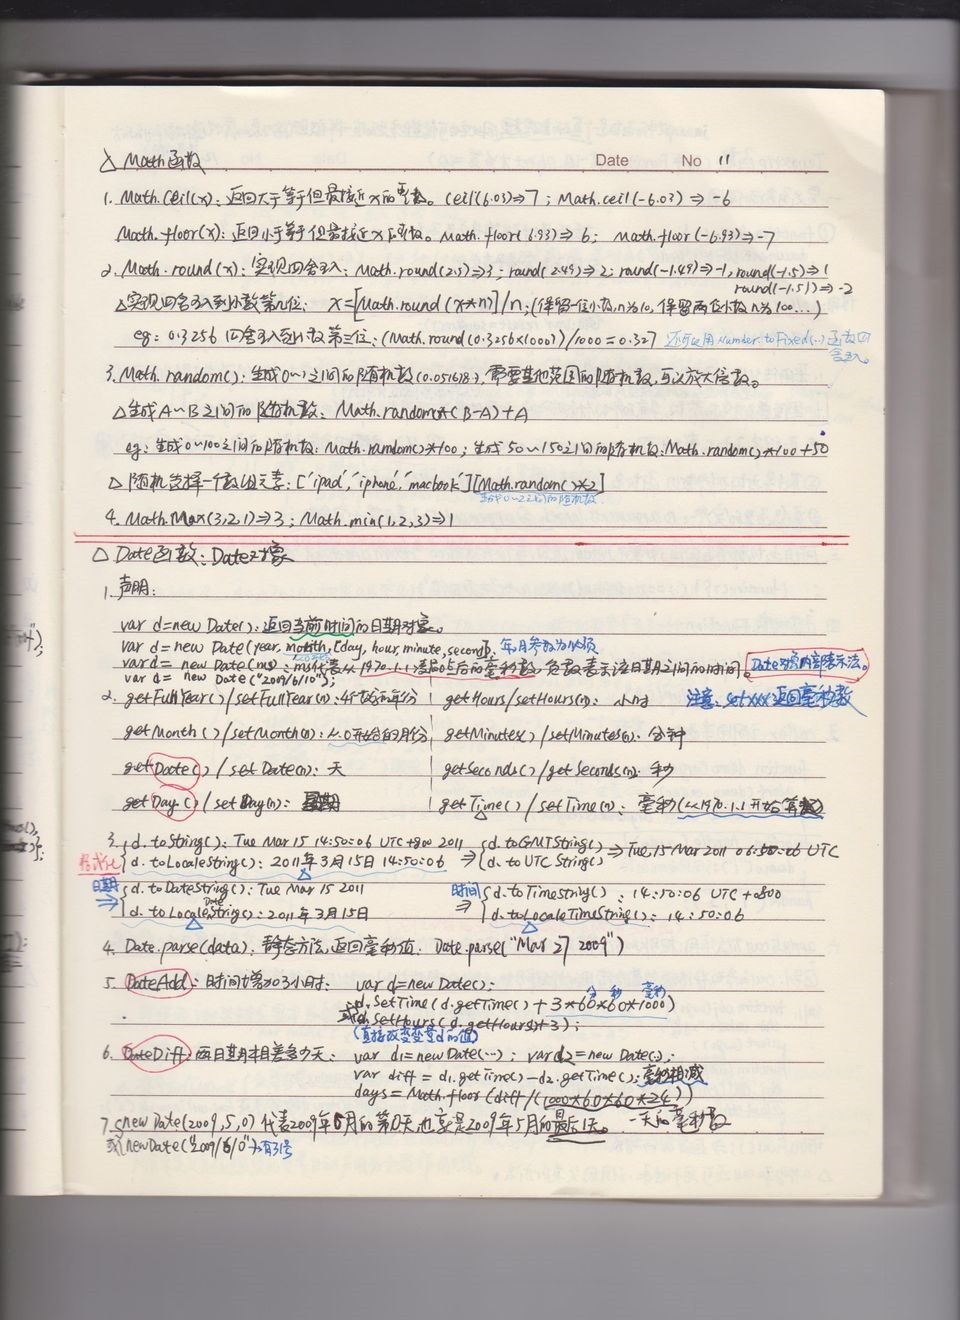 Date No 11
△ Math函数
1. Math.Ceil(x): 返回大于等于但最接近x的整数。Ceil(6.03)⇒7 ; Math.ceil(-6.03) ⇒ -6
Math.floor(x): 返回小于等于但最接近x的整数。Math.floor(6.93)⇒ 6; Math.floor(-6.93)⇒-7
2. Math.round(x): 实现四舍五入: Math.round(2.5)⇒3; round(2.49)⇒2; round(-1.49)⇒-1, round(-1.5)⇒1
round(-1.51)⇒-2
△实现四舍五入到小数第n位: x=[Math.round(x*n)]/n; (保留一位小数, n为10, 保留两位小数 n为100...)
eg: 0.3256 四舍五入到小数第三位: (Math.round(0.3256×1000)/1000=0.327 还可使用Number.toFixed(..)函数四
舍五入。
3. Math.random(): 生成0~1之间的随机数(0.051678), 需要其他范围的随机数, 可以放大倍数。
△生成A~B之间的随机数: Math.random*(B-A)+A
eg: 生成0~100之间的随机数: Math.random()*100; 生成50~150之间的随机数: Math.random()*100+50
△随机选择一个数组元素: ['ipad', 'iphone', 'macbook'][Math.random()*2]
生成0~2之间的随机数
4. Math.Max(3,2,1)⇒3; Math.min(1,2,3)⇒1
△ Date函数: Date对象
1. 声明:
var d=new Date(): 返回当前时间的日期对象。
var d=new Date(year, month, [day, hour, minute, second]), 年月参数为必须
var d= new Date(ms): ms代表从1970.1.1凌晨0点后的毫秒数, 负数表示该日期之间的时间。Date对象内部表示法。
var d= new Date("2009/6/10");
2. getFullYear()/setFullYear(n): 4位数的年份 getHours/setHours(n): 小时 注意: setxxx返回毫秒数
getMonth()/setMonth(n): 从0开始的月份 getMinutes()/setMinutes(n): 分钟
getDate()/setDate(n): 天 getSeconds()/getSeconds(n): 秒
getDay()/setDay(n): 星期 getTime()/setTime(n): 毫秒(从1970.1.1开始算起)
3. d.toString(): Tue Mar 15 14:50:06 UTC+800 2011 d.toGMTString() ⇒ Tue, 15 Mar 2011 06:50:06 UTC
格式化 d.toLocaleString(): 2011年3月15日 14:50:06 ⇒ d.toUTCString()
日期 ⇒ d.toDateString(): Tue Mar 15 2011 时间 ⇒ d.toTimeString(): 14:50:06 UTC+0800
d.toLocaleDateString(): 2011年3月15日 d.toLocaleTimeString(): 14:50:06
4. Date.parse(data): 静态方法, 返回毫秒值. Date.parse("Mar 27 2009")
5. DateAdd: 时间增加3小时: var d=new Date();
分 秒 毫秒
d.SetTime(d.getTime()+3*60*60*1000)
或d.setHours(d.getHours()+3);
(直接改变变量d的值)
6. DateDiff: 两日期相差多少天: var d1=new Date(...); var d2=new Date(..);
var diff = d1.getTime()-d2.getTime(): 毫秒相减
days=Math.floor(diff/(1000*60*60*24)
一天的毫秒数
7. new Date(2009,5,0) 代表2009年6月的第0天也就是2009年5月的最后1天。
或 new Date("2009/6/0") 有引号